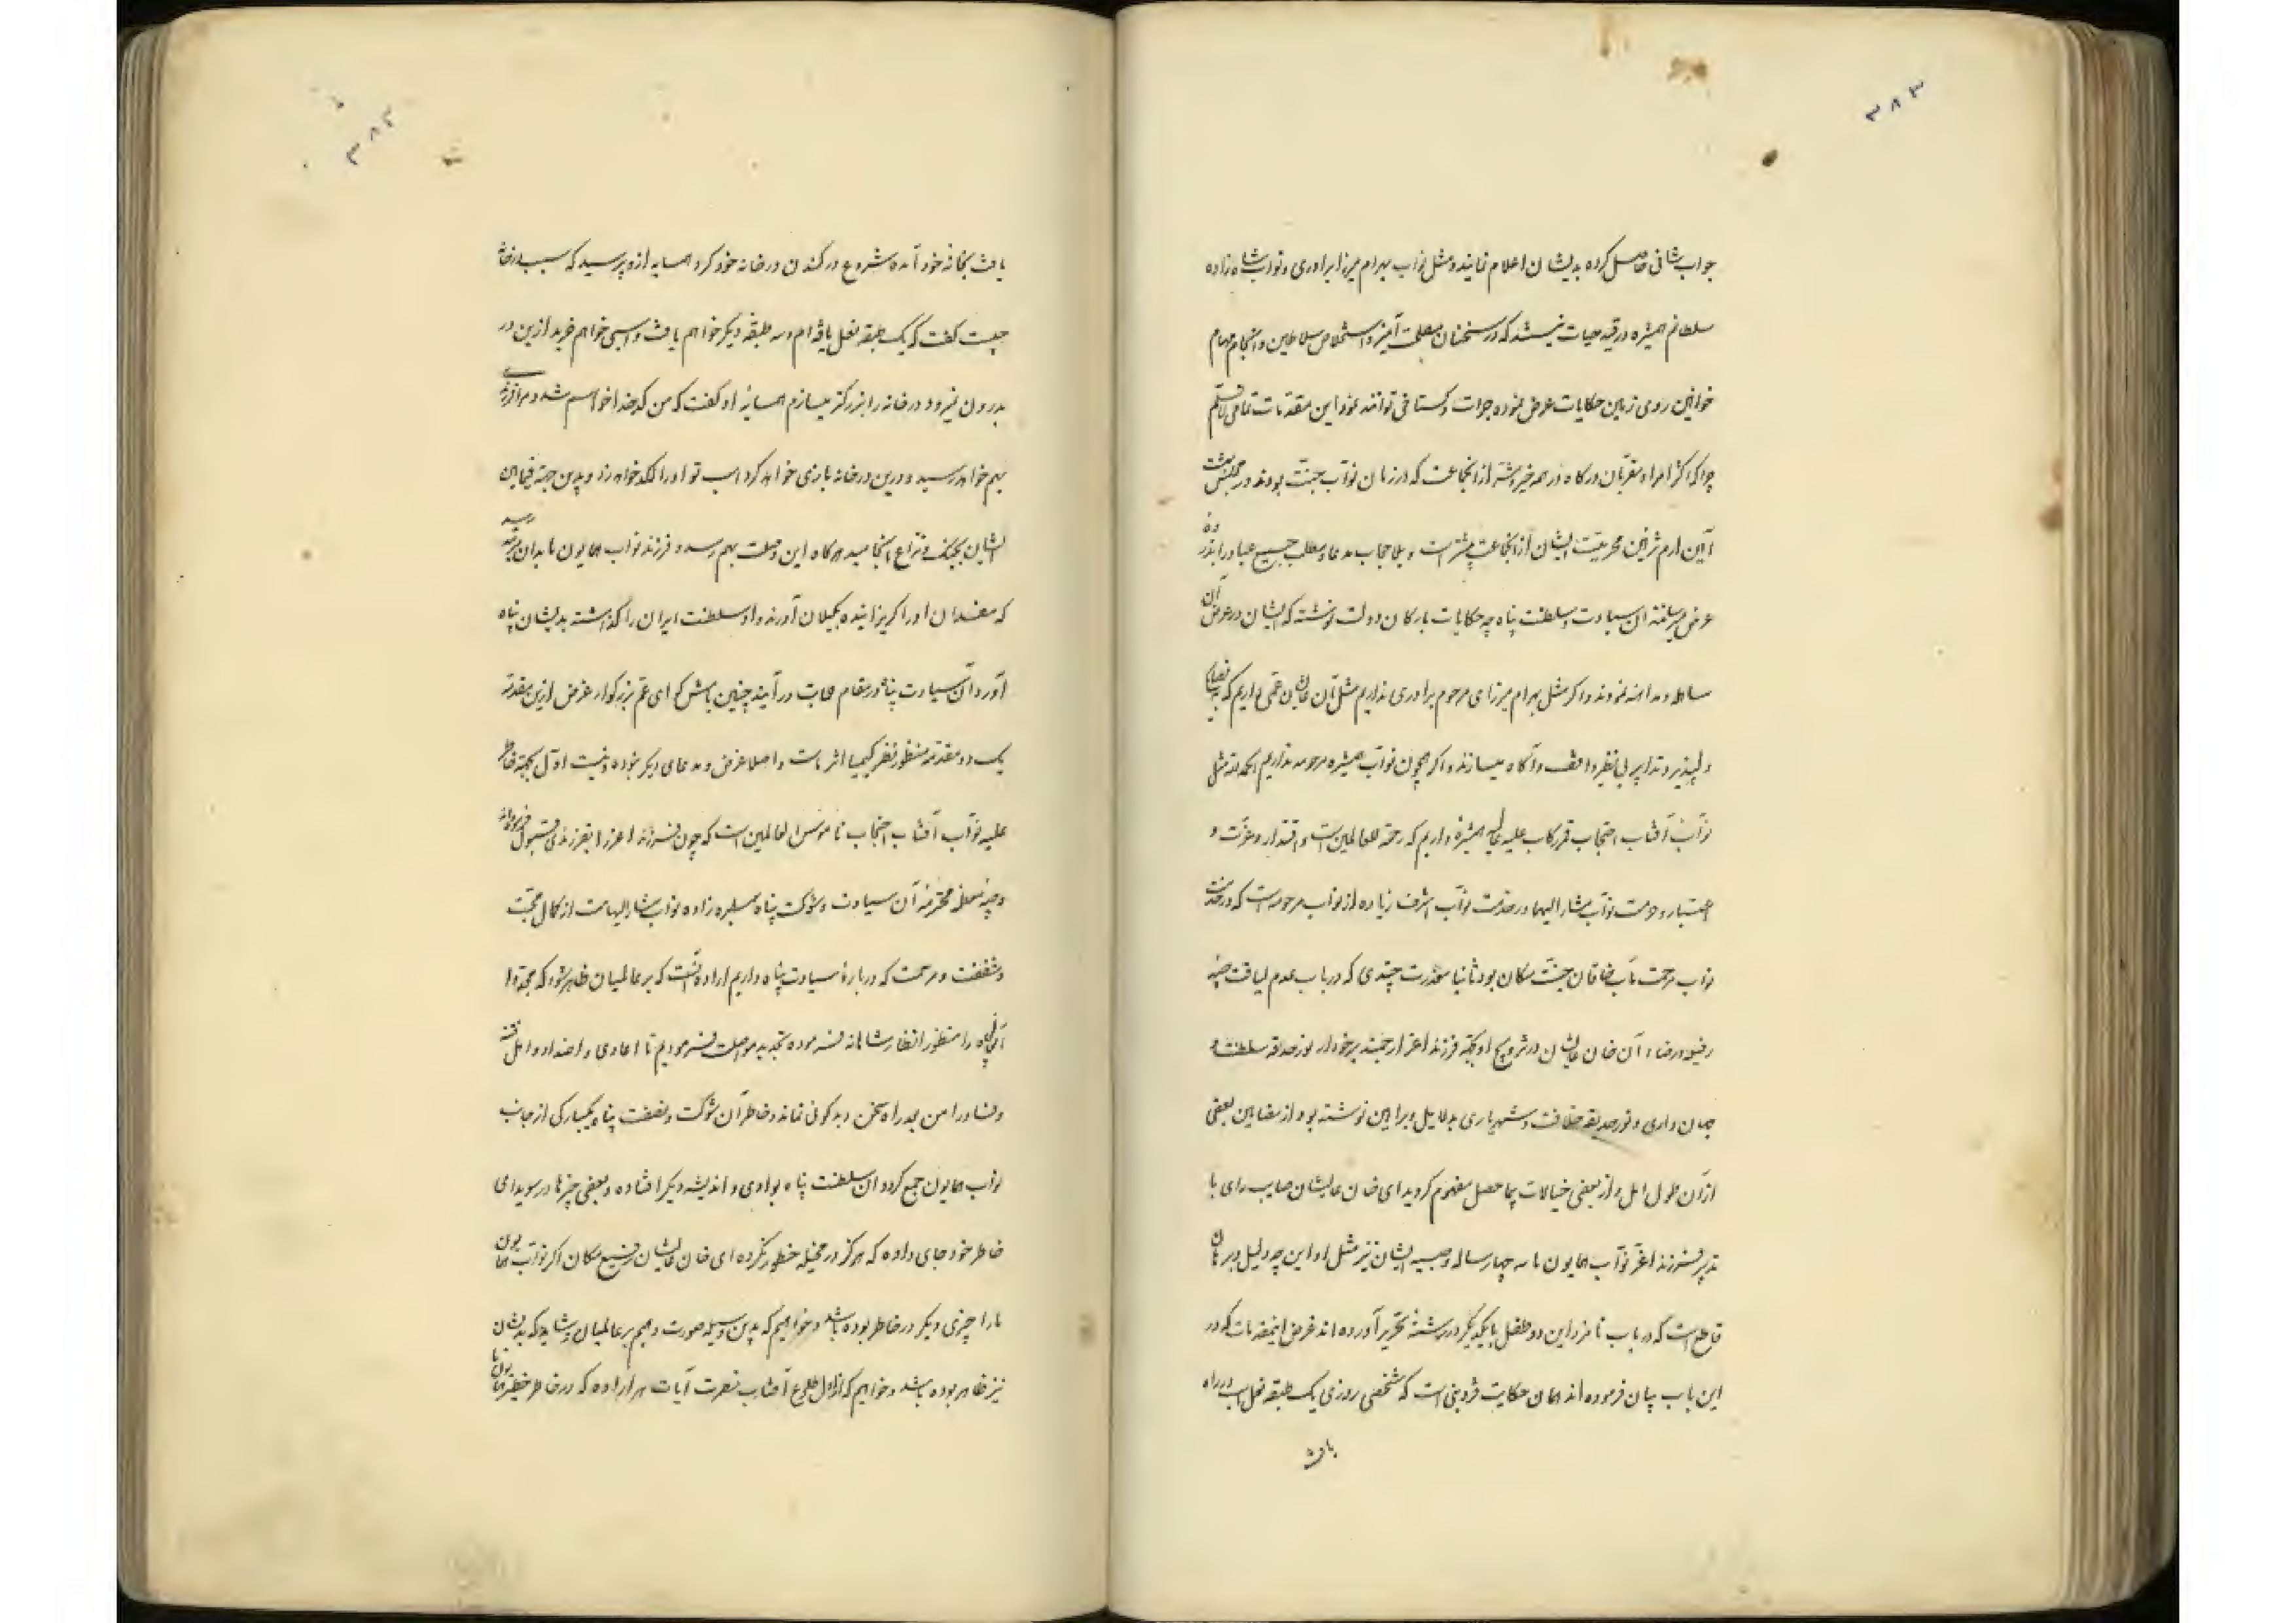 ۳۸۳
جواب شافی حاصل کرده بدیشان اعلام نمایند و مثل نواب بهرام میرزا برادری و نواب شاه زاده
سلطانم همشیره در قید حیات نیستند که در سخنان مصلحت آمیز و استخلاص سلاطین و انجام مهام
خواقین روی زمین حکایات عرض نموده جرات و گستاخی توانند نمود این مقدمات تمامی
چرا که اکثر امرا و مقربان درگاه در همه خیر بیشتر از انجاعت که در زمان نواب جنت بودند در مجلس بهشت
آیین ارم تزیین محرمیت ایشان از انجماعت بیشتر است و بلا حجاب مدعا و مطلب جمیع عباد را بذروه
عرض میرسانند آن سیادت و سلطنت پناه چه حکایات بارکان دولت نوشته که ایشان در عرض آن
مساهله و مداهنه نمودند و اگر مثل بهرام میرزای مرحوم برادری نداریم مثل آن عالیشان عمی داریم که بنصایح
دلپذیر و تدابیر بی نظیر واقف و آگاه میسازند و اگر همچون نواب همشیره مرحومه نداریم الحمد لله مثل
نواب آفتاب احتجاب قمر رکاب علیه عالیه همشیرهٔ داریم که رحمة للعالمین است و اقتدار و عزت و
اعتبار و حرمت نواب مشار الیها در خدمت نواب اشرف زیاده از نواب مرحومه است که در خدمت
نواب مرحمت مآب خاقان جنت مکان بود ثانیا معذرت چندی که در باب عدم لیاقت صبیه
رضیه و رضاء آن خان عالیشان در تزویج او بجهة فرزند اعز ارجمند برخوردار نور حدقه سلطنت و
جهان داری و نور حدیقه خلافت و شهریاری بدلایل و براهین نوشته بود از مضامین بعضی
از آن طول امل و از بعضی خیالات بیحاصل مفهوم گردید ای خان عالیشان صایب رای با
تدبیر فرزند اعز نواب همایون ما سه چهار ساله و صبیه ایشان نیز مثل او این چه دلیل و برهان
قاطع است که در باب نامزد این دو طفل بایکدیگر در رشته تحریر آورده اند غرض این مقدمات که در
این باب بیان فرموده اند همان حکایت قزوینی است که شخصی روزی یک طبقه نعل اسب در راه
یافت
۳۸۴
یافت بخانه خود آمده شروع در کندن در خانه خود کرد همسایه ازو پرسید که سبب در خانه
چیست گفت که یک طبقه نعل یافته ام و سه طبقه دیگر خواهم یافت و اسبی خواهم خرید ازین در
بدرون نمیرود در خانه را بزرگتر میسازم همسایه او گفت که من کدخدا خواهم شد و مرا فرزندی
بهم خواهد رسید و درین در خانه بازی خواهد کرد اسب تو او را لگد خواهد زد و بدین جهة فیمابین
ایشان بجنگ و نزاع انجامید هرگاه این وصلت بهم رسد و فرزند نواب همایون ما بدان مرتبه رسید
که مفسدان او را گریزانیده بگیلان آورند و او سلطنت ایران را گذاشته بدیشان پناه
آورد و آن سیادت پناه در مقام حمایت در آیند چنین باش گو ای عم بزرگوار غرض ازین مقدمه
یک دو مقدمه منظور نظر کیمیا اثر ماست و اصلا غرض و مدعای دیگر نبوده و نیست اول بجهة خاطر
علیه نواب آفتاب احتجاب ناموس العالمین است که چون فرزند اعز را بفرزندی قبول فرموده اند
و صبیه محترمه آن سیادت و شوکت پناه همشیره زاده نواب مشار الیهاست از کمال محبت
و شفقت و مرحمت که دربارهٔ سیادت پناه داریم اراده آنست که بر عالمیان ظاهر شود که مجددا
آن عالیجاه را منظور انظار شاهانه فرموده تجدید مواصلت فرمودیم تا اعادی و اضداد و اهل فتنه
و فساد را من بعد راه سخن و بدگوئی نماند و خاطر آن شوکت و نصفت پناه یکبارگی از جانب
نواب همایون جمع گردد آن سلطنت پناه بوادی و اندیشه دیگر افتاده و بعضی چیزها در سویدای
خاطر خود جای داده که هرگز در مخیله خطور نکرده ای خان عالیشان رفیع مکان اگر نواب همایون
ما را چیزی دیگر در خاطر بوده باشد و خواهیم که بدین وسیله صورت دهیم بر عالمیان و شاید که بدیشان
نیز ظاهر بوده باشد و خواهیم که از اول طلوع آفتاب نصرت آیات هر اراده که در خاطر خطیر همایون ما